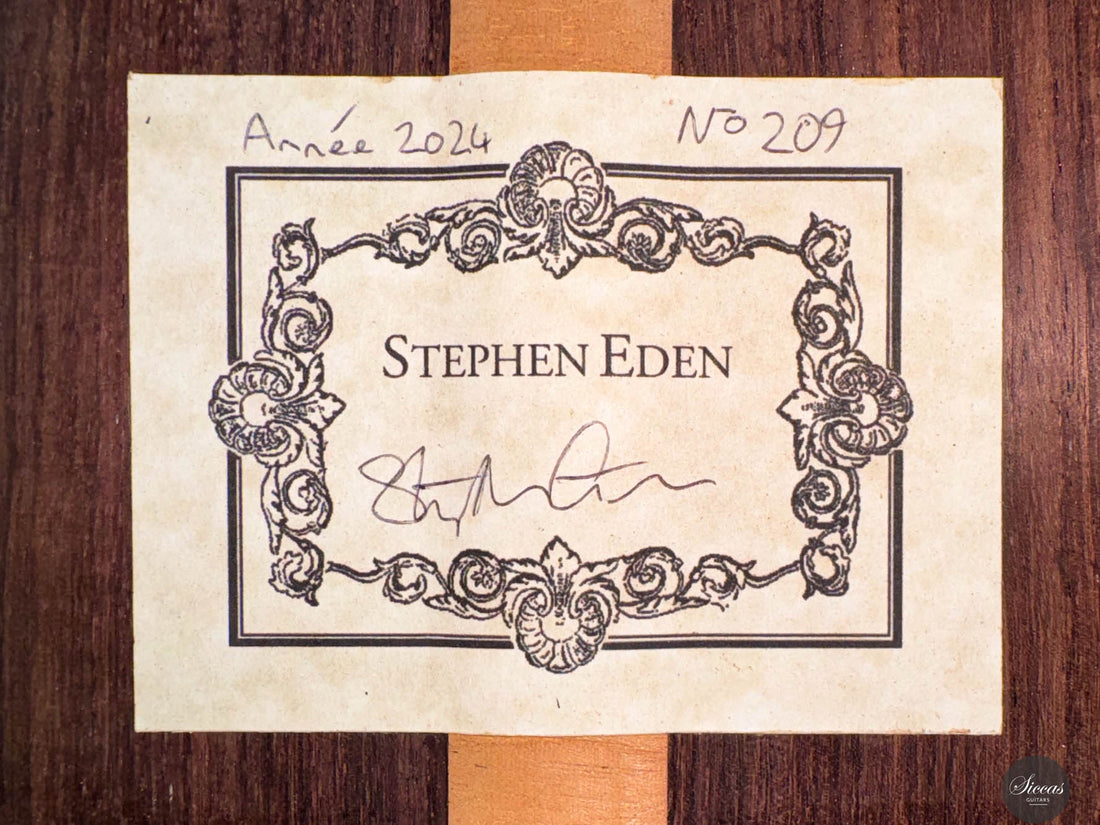 Année 2024 No 209
STEPHEN EDEN
Siccas
GUITARS